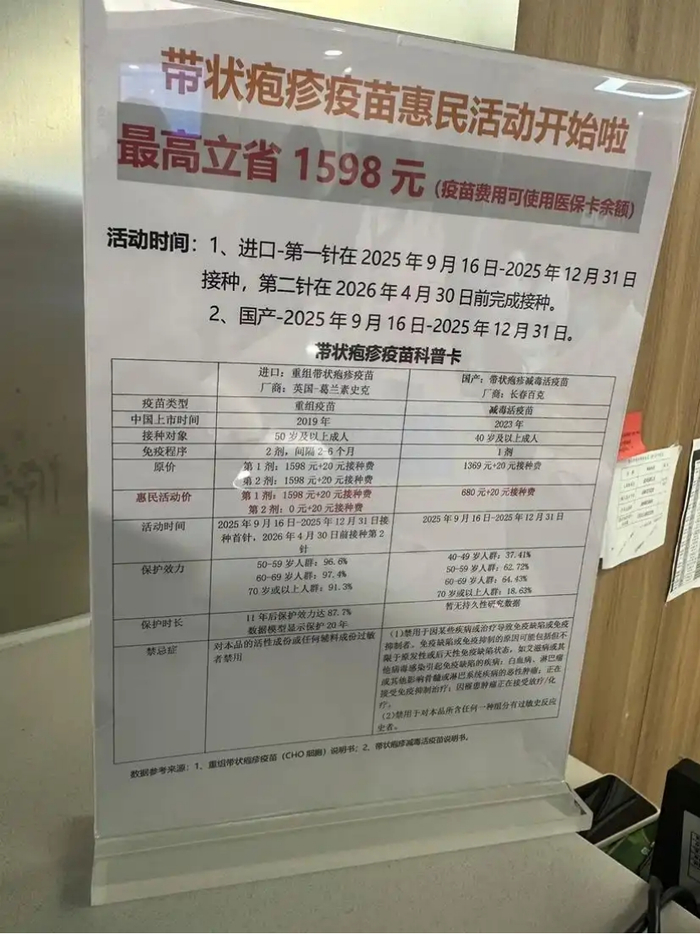 带状疱疹疫苗惠民活动开始啦
最高立省 1598 元（疫苗费用可使用医保卡余额）
活动时间：1、进口-第一针在 2025 年 9 月 16 日-2025 年 12 月 31 日
接种，第二针在 2026 年 4 月 30 日前完成接种。
2、国产-2025 年 9 月 16 日-2025 年 12 月 31 日。
带状疱疹疫苗科普卡
进口：重组带状疱疹疫苗
厂商：英国-葛兰素史克
国产：带状疱疹减毒活疫苗
厂商：长春百克
疫苗类型 重组疫苗 减毒活疫苗
中国上市时间 2019 年 2023 年
接种对象 50 岁及以上成人 40 岁及以上成人
免疫程序 2 剂，间隔 2-6 个月 1 剂
原价 第 1 剂：1598 元+20 元接种费 1369 元+20 元接种费
第 2 剂：1598 元+20 元接种费
惠民活动价 第 1 剂：1598 元+20 元接种费 680 元+20 元接种费
第 2 剂：0 元+20 元接种费
活动时间 2025 年 9 月 16 日-2025 年 12 月 31 日接
种首针，2026 年 4 月 30 日前接种第 2
针
2025 年 9 月 16 日-2025 年 12 月 31 日
保护效力 50-59 岁人群：96.6%
60-69 岁人群：97.4%
70 岁或以上人群：91.3%
40-49 岁人群：37.41%
50-59 岁人群：62.72%
60-69 岁人群：64.43%
70 岁或以上人群：18.63%
保护时长 11 年后保护效力达 87.7%
数据模型显示保护 20 年
暂无持久性研究数据
禁忌症 对本品的活性成份或任何辅料成份过敏
者禁用
（1）禁用于因某些疾病或治疗导致免疫缺陷或免疫
抑制者。免疫缺陷或免疫抑制的原因可能包括但不
限于原发性或后天性免疫缺陷状态，如艾滋病或其
他病毒感染引起免疫缺陷的疾病；白血病、淋巴瘤
或其他影响骨髓或淋巴系统疾病的恶性肿瘤；正在
接受免疫抑制治疗；因罹患肿瘤正在接受放疗/化
疗。
（2）禁用于对本品所含任何一种组分有过敏史反应
史者。
数据参考来源：1、重组带状疱疹疫苗（CHO 细胞）说明书；2、带状疱疹减毒活疫苗说明书。